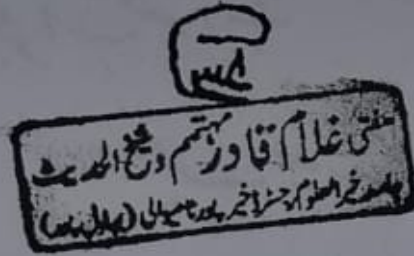 مفتی غلام قادر مہتمم و شیخ الحدیث
جامعہ خیر العلوم خیر پور ٹامیوالی (بہاولپور)